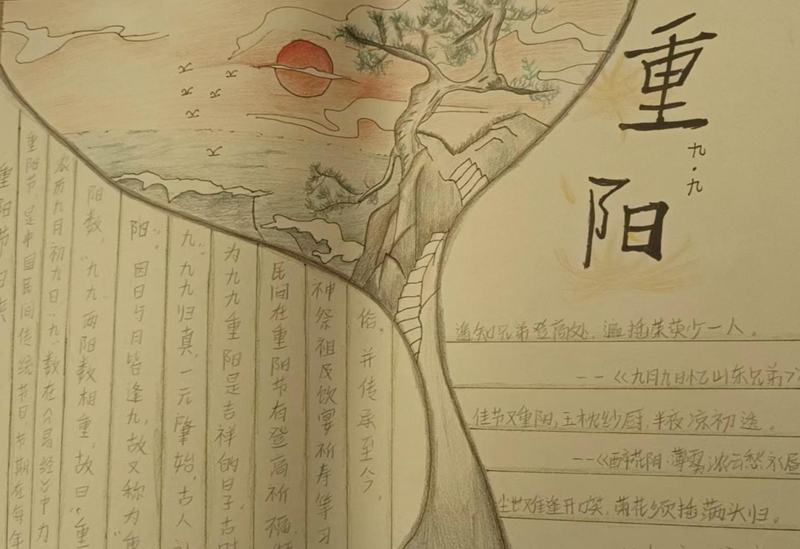 重
阳
九·九
重阳节
重阳节是中国民间传统节日,日期在每年
农历九月初九日。"九"数在《易经》中
阳数,"九九"两阳数相重,故曰"重
阳"。因日与月皆逢九,故又称为"重
九"。九九归真,一元肇始,古人
为九九重阳是吉祥的日子。古时
民间在重阳节有登高祈福
神祭祖及饮宴祈寿等习
俗。并传承至今。
遥知兄弟登高处,遍插茱萸少一人。
——《九月九日忆山东兄弟》
佳节又重阳,玉枕纱厨,半夜凉初透。
——《醉花阴·薄雾浓云愁永昼
尘世难逢开口笑,菊花须插满头归。